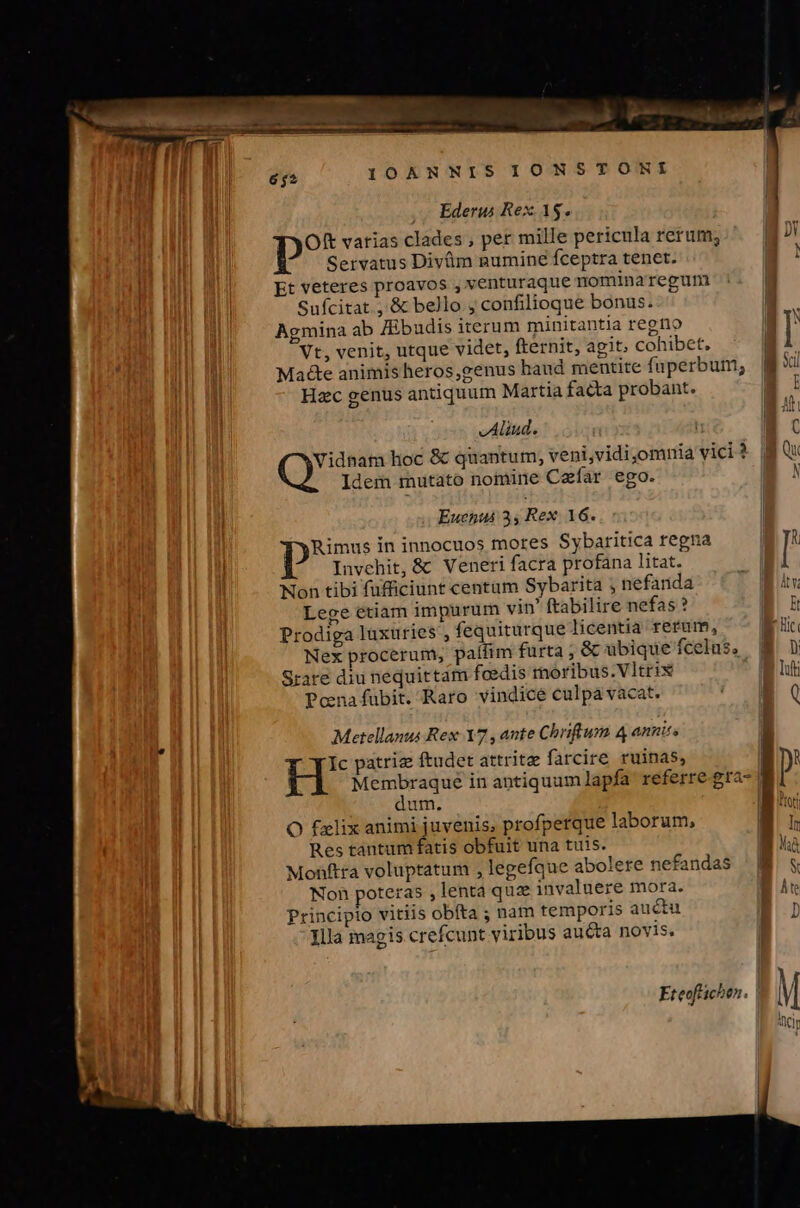 652 IOANNIS IONSTONI
Ederus Rex 15.
POſt varias clades, per mille pericula rerum,
Servatus Divûm numine ſceptra tenet.
Et veteres proavos, venturaque nomina regum
Suſcitat, & bello, conſilioque bonus.
Agmina ab Æbudis iterum minitantia regno
Vt, venit, utque videt, ſternit, agit, cohibet.
Macte animis heros, genus haud mentite ſuperbum,
Hæc genus antiquum Martia facta probant.
Aliud.
QVidnam hoc & quantum, veni, vidi, omnia vici?
Idem mutato nomine Cæſar ego.
Euenus 3, Rex 16.
PRimus in innocuos mores Sybaritica regna
Invehit, & Veneri ſacra profana litat.
Non tibi ſufficiunt centum Sybarita, nefanda
Lege etiam impurum vin' ſtabilire nefas?
Prodiga luxuries, ſequiturque licentia rerum,
Nex procerum, paſſim furta, & ubique ſcelus.
Srare diu nequit tam fœdis moribus. Vltrix
Pœna ſubit. Raro vindice culpa vacat.
Metellanus Rex 17, ante Chriſtum 4 annis.
HIc patriæ ſtudet attritæ ſarcire ruinas,
Membraque in antiquum lapſa referre gra-
dum.
O fælix animi juvenis, proſperque laborum,
Res tantum fatis obfuit una tuis.
Monſtra voluptatum, legeſque abolere nefandas
Non poteras, lenta quæ invaluere mora.
Principio vitiis obſta; nam temporis auctu
Illa magis creſcunt viribus aucta novis.
Eteoſtichon.